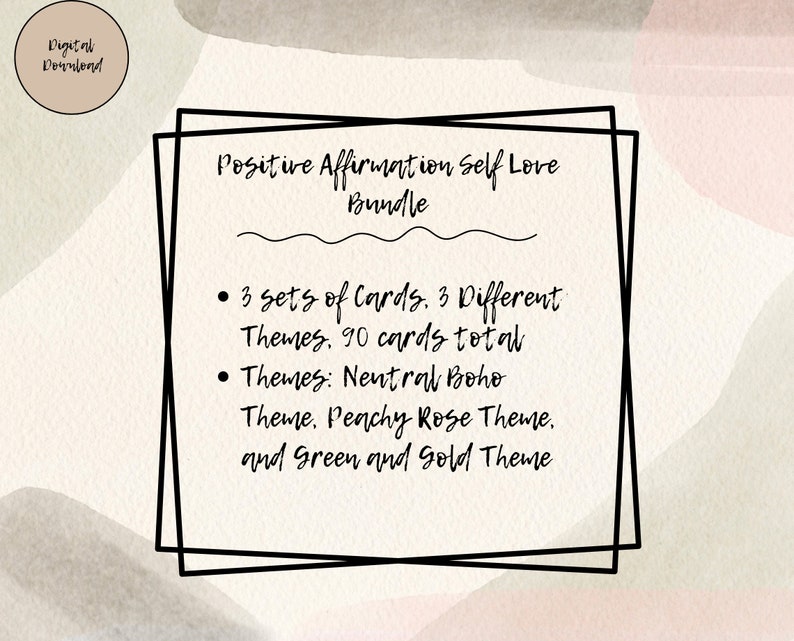 Digital
Download
Positive Affirmation Self Love
Bundle
• 3 sets of Cards, 3 Different
Themes, 90 cards total
• Themes: Neutral Boho
Theme, Peachy Rose Theme,
and Green and Gold Theme